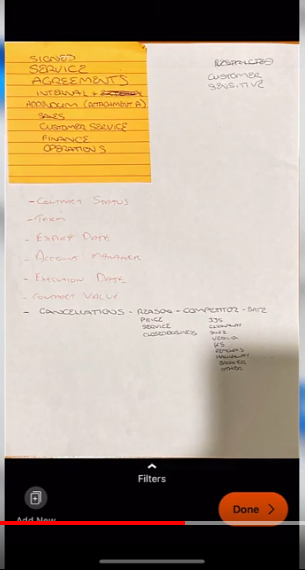 SIGNED
SERVICE
AGREEMENTS
INTERNAL +
ADDENDUM (ATTACHMENT A)
SALES
CUSTOMER SERVICE
FINANCE
OPERATIONS
CUSTOMER
SENSITIVE
- CONTRACT STATUS
- TERM
- EXPIRY DATE
- ACCOUNT MANAGER
- EXECUTION DATE
- CONTRACT VALUE
- CANCELLATIONS - REASON - COMPETITOR - DATE
PRICE
SERVICE
CLOSED BUSINESS
VEOLIA
OTHER
Filters
Add New
Done